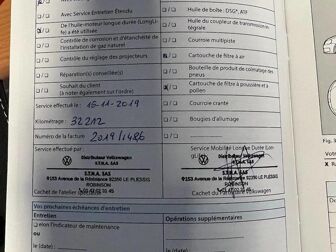 Avec Service Entretien Étendu
Huile de boîte : DSG®, ATF
De l'huile-moteur longue durée (LongLife) a été utilisée
Huile du coupleur de transmission intégrale
Contrôle de corrosion et d'étanchéité de l'installation de gaz naturel
Courroie multipiste
Contrôle du réglage des projecteurs
Cartouche de filtre à air
Réparation(s) conseillée(s)
Bouteille de produit de colmatage des pneus
Souhait du client
(à noter également sur l'ordre)
Cartouche de filtre à poussière et à pollen
Service effectué le : 15-11-2019
Courroie crantée
Kilométrage : 32212
Bougies d'allumage
Numéro de la facture 2019/1486
Service effectué par :
Service Mobilité Longue Durée
Distributeur Volkswagen
S.E.N.A. SAS
9153 Avenue de la Résistance 92350 LE PLESSIS ROBINSON
Cachet de l'atelier
Distributeur Volkswagen
S.E.N.A. SAS
9153 Avenue de la Résistance 92350 LE PLESSIS
ROBINSON
Cachet du Partenaire Volkswagen
Vos prochaines échéances d'entretien
Entretien
Opérations supplémentaires
selon l'indicateur de maintenance
ou